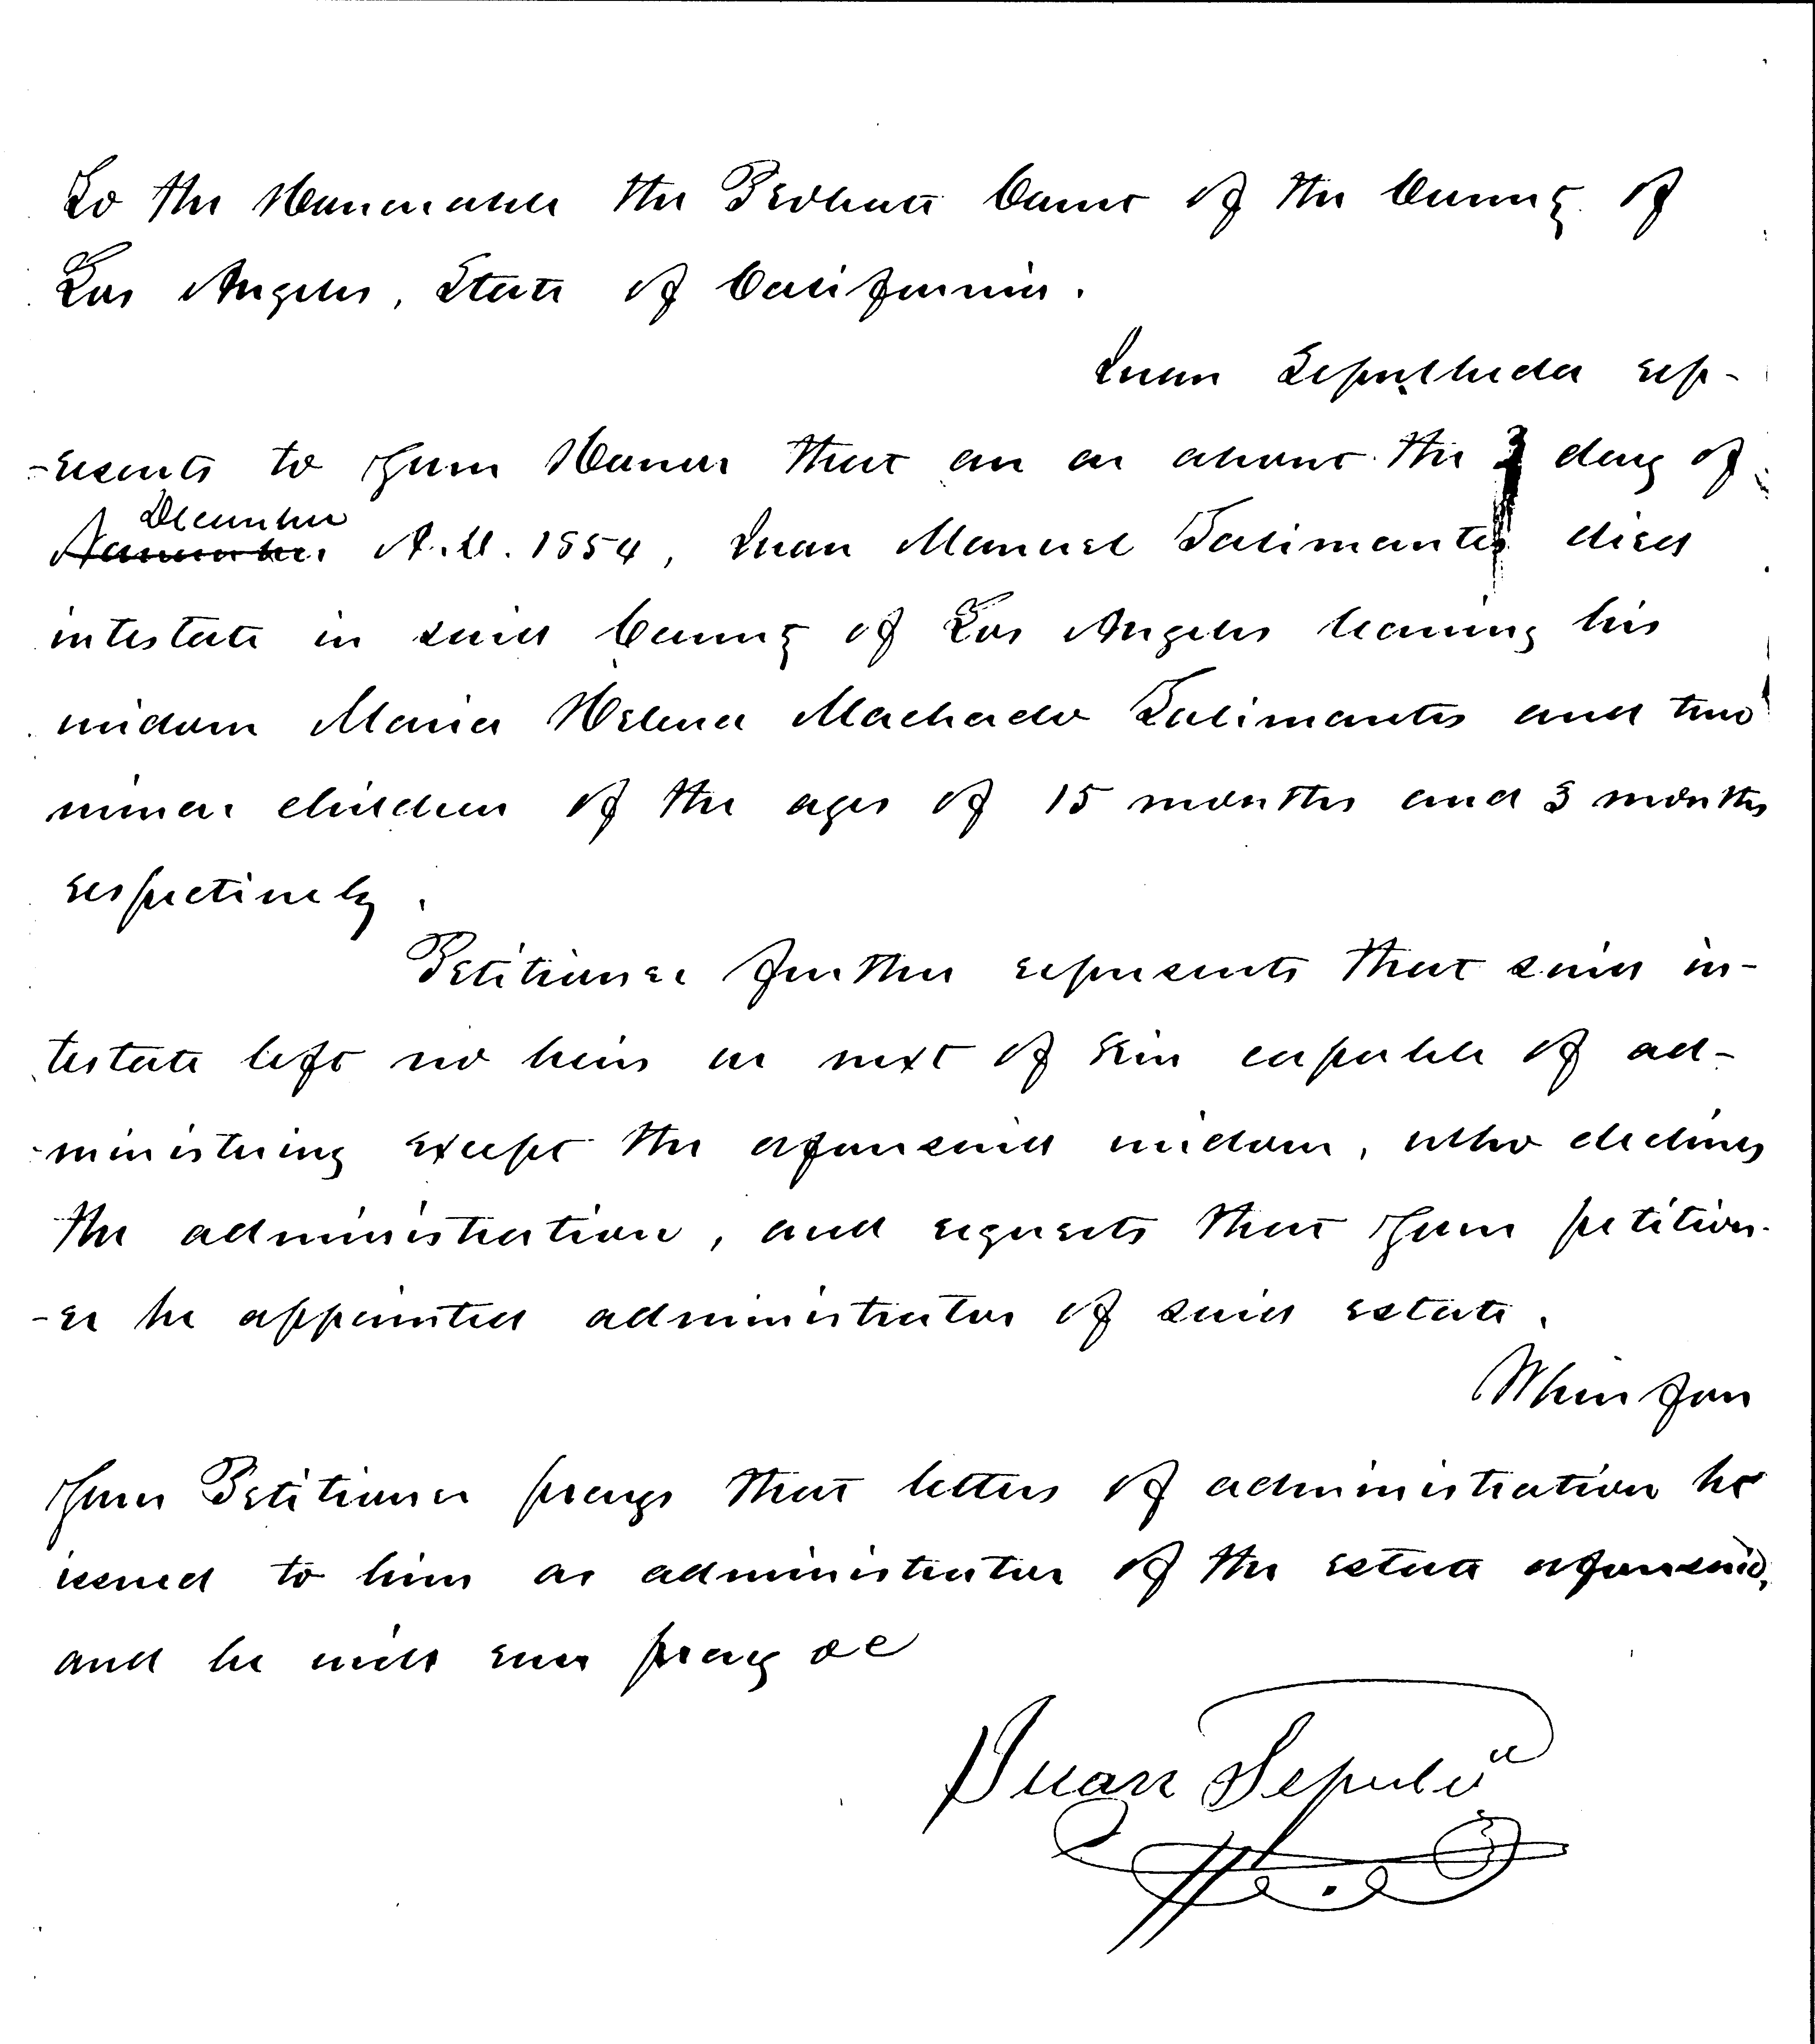 To the Honorable the Probate Court of the County of
Los Angeles, State of California.
Juan Sepulbeda rep-
-resents to your Honor that on or about the 3 day of
December
November A.D. 1854, Juan Manuel Talimantes died
intestate in said County of Los Angeles leaving his
widow Maria Helena Machado Talimantes and two
minor children of the ages of 15 months and 3 months
respectively.
Petitioner further represents that said in-
testate left no heirs or next of kin capable of ad-
-ministering except the aforesaid widow, who declines
the administration, and requests that your petition-
-er be appointed administrator of said estate.
Wherefore
your Petitioner prays that letters of administration be
issued to him as administrator of the estate aforesaid,
and he will ever pray &c
Juan Sepulvᵃ